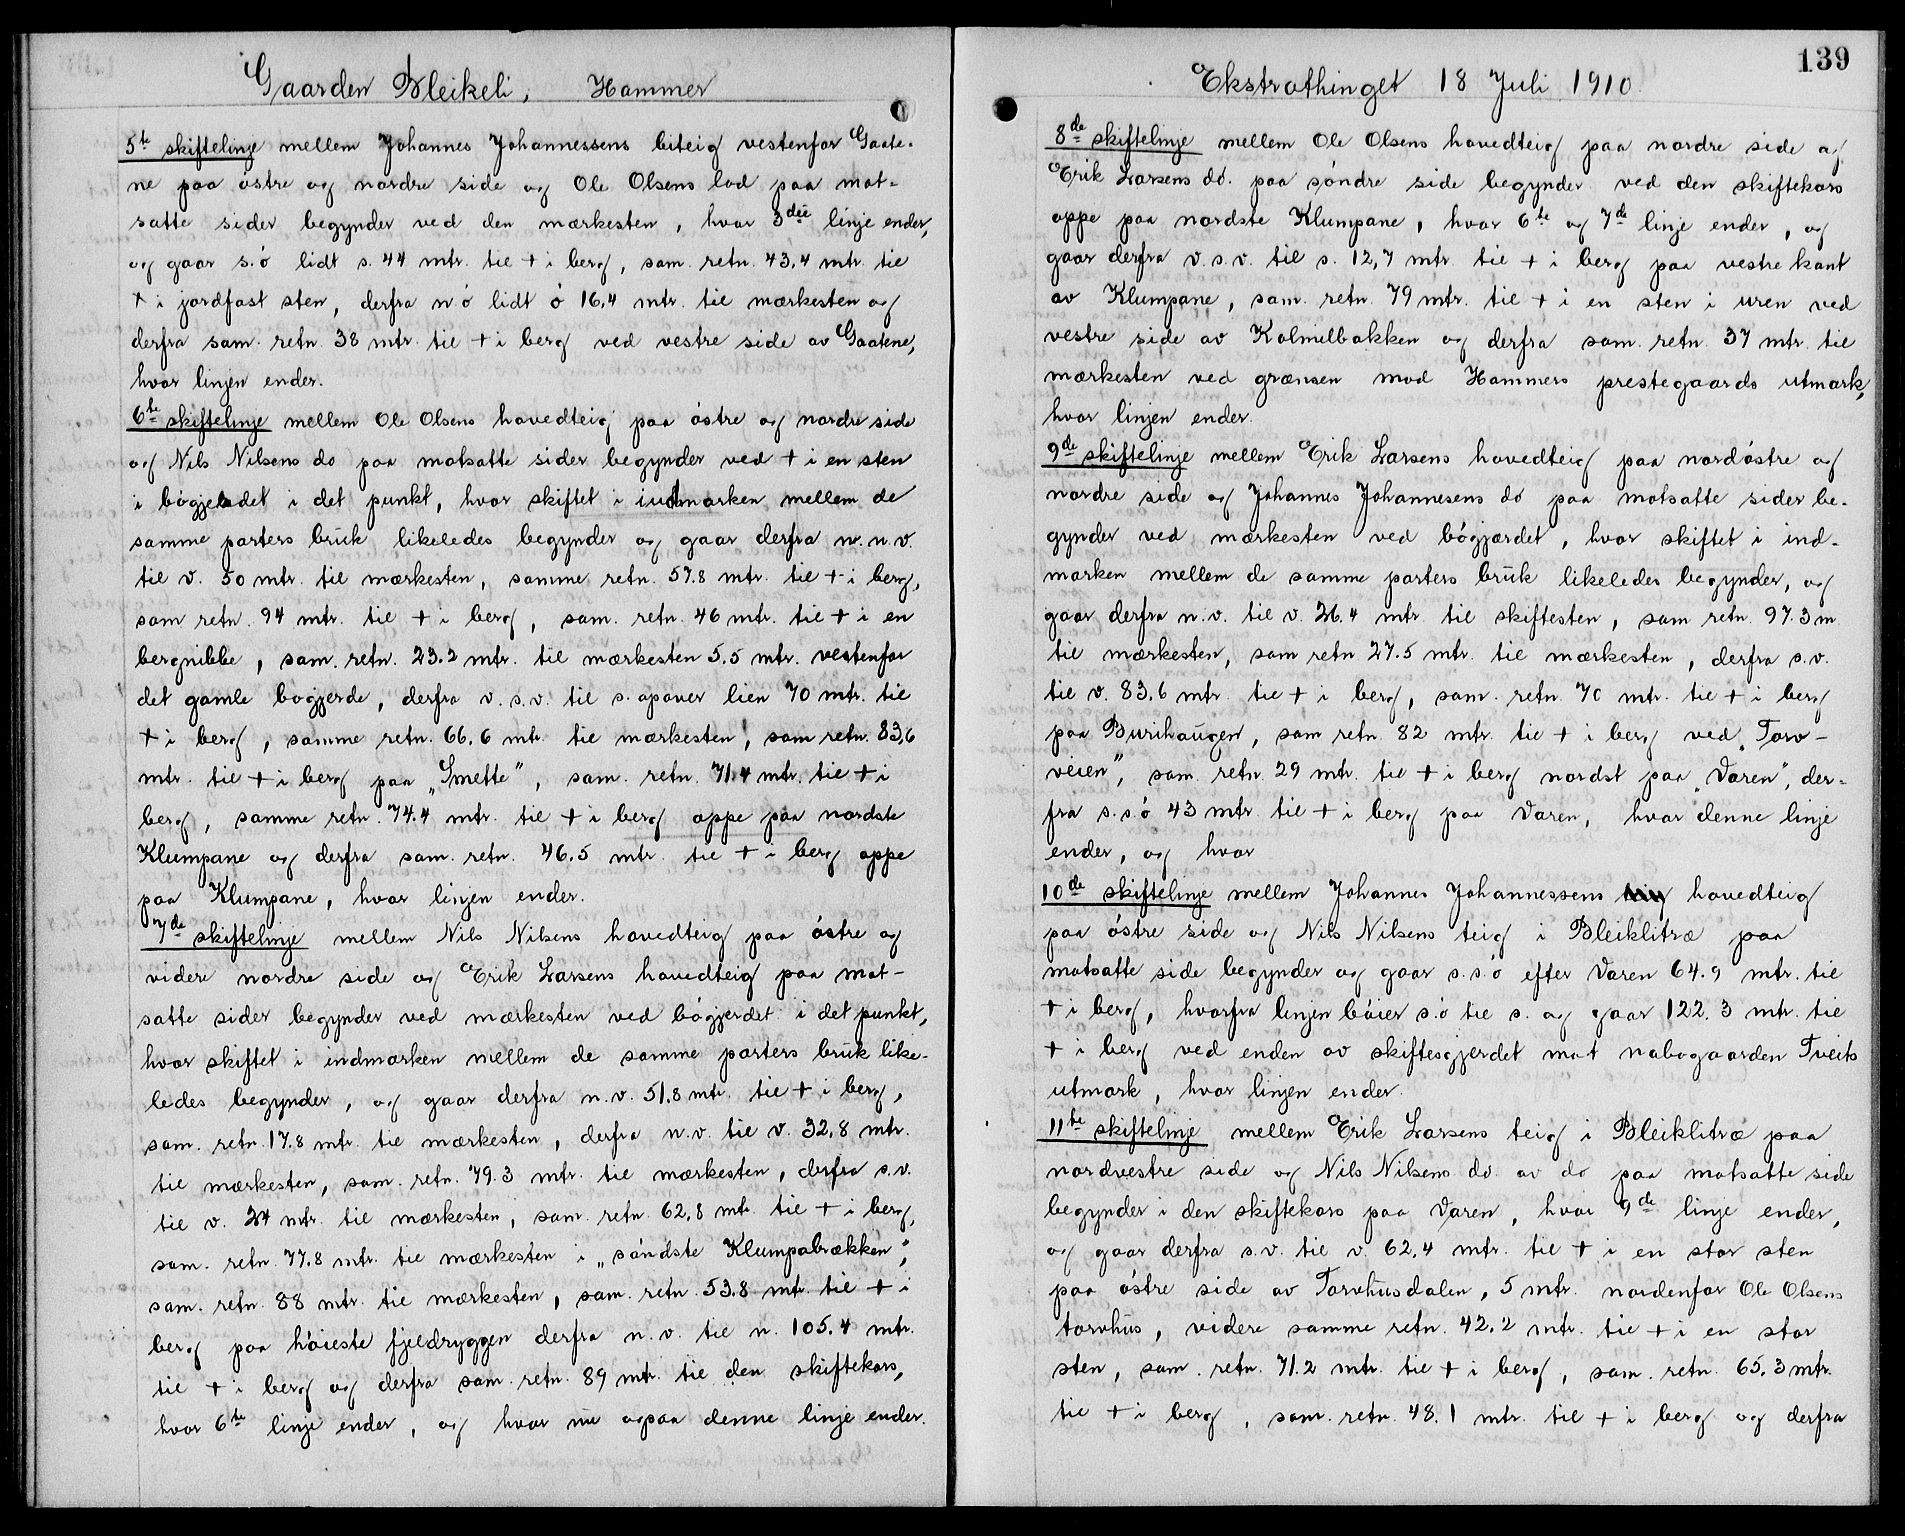 Gaarden Bleikeli, Hammer
5te skiftelinje mellem Johannes Johannessens biteig vestenfor Gaate-
ne paa østre og nordre side og Ole Olsens lod paa mot-
satte sider begynder ved den mærkesten, hvor 3die linje ender,
og gaar s.ø lidt s. 44 mtr. til + i berg, sam. retn. 43,4 mtr. til
+ i jordfast sten, derfra n ø lidt ø 16,4 mtr. til mærkesten og
derfra sam. retn. 38 mtr. til + i berg ved vestre side av Gaatene,
hvor linjen ender.
6te skiftelinje mellem Ole Olsens hovedteig paa østre og nordre side
og Nils Nilsens do paa motsatte sider begynder ved + i en sten
i bøgjerdet i det punkt, hvor skiftet i indmarken mellem de
samme parters bruk likeledes begynder og gaar derfra n.n.v.
til v. 50 mtr. til mærkesten, samme retn. 57.8 mtr. til + i berg,
sam retn. 94 mtr. til + i berg, sam. retn. 46 mtr. til + i en
bergnibbe, sam. retn. 23.2 mtr. til mærkesten 5.5 mtr. vestenfor
det gamle bøgjerde, derfra v.s.v. til s. opover lien 70 mtr. til
+ i berg, samme retn. 66.6 mtr. til mærkesten, sam retn. 83,6
mtr. til + i berg paa „Smette", sam. retn. 71.4 mtr. til + i
berg, samme retn. 74.4 mtr. til + i berg oppe paa nordste
Klumpane og derfra sam. retn. 46.5 mtr. til + i berg oppe
paa Klumpane, hvor linjen ender.
7de skiftelinje mellem Nils Nilsens hovedteig paa østre og
videre nordre side og Erik Larsens hovedteig paa mot-
satte sider begynder ved mærkesten ved bøgjerdet i det punkt,
hvor skiftet i indmarken mellem de samme parters bruk like-
ledes begynder, og gaar derfra n.v. 51.8 mtr. til + i berg,
sam. retn. 17.8 mtr. til mærkesten, derfra n.v. til v. 32.8 mtr.
til mærkesten, sam. retn. 79.3 mtr. til mærkesten, derfra s.v.
til v. 24 mtr. til mærkesten, sam. retn. 62.8 mtr. til + i berg,
sam. retn. 77.8 mtr. til mærkesten i „søndste Klumpabrækken",
sam. retn. 88 mtr. til mærkesten, sam. retn. 53.8 mtr. til + i
berg paa høieste fjeldryggen derfra n.v. til n. 105.4 mtr.
til + i berg og derfra sam. retn. 89 mtr. til den skiftekors,
hvor 6te linje ender, og hvor nu ogsaa denne linje ender.
Ekstrathinget 18 Juli 1910.
139
8de skiftelinje mellem Ole Olsens hovedteig paa nordre side og
Erik Larsens do. paa søndre side begynder ved den skiftekors
oppe paa nordste Klumpane, hvor 6te og 7de linje ender, og
gaar derfra v.s.v. til s. 12,7 mtr. til + i berg paa vestre kant
av Klumpane, sam. retn. 79 mtr. til + i en sten i uren ved
vestre side av Kolmilbakken og derfra sam. retn. 37 mtr. til
mærkesten ved grænsen mod Hammers prestegaards utmark,
hvor linjen ender.
9de skiftelinje mellem Erik Larsens hovedteig paa nordøstre og
nordre side og Johannes Johannesens do paa motsatte sider be-
gynder ved mærkesten ved bøgjærdet, hvor skiftet i ind-
marken mellem de samme parters bruk likeledes begynder, og
gaar derfra n.v. til v. 26.4 mtr til skiftesten, sam retn. 97.3 m.
til mærkesten, sam retn 27.5 mtr. til mærkesten, derfra s.v.
til v. 83.6 mtr. til + i berg, sam. retn. 70 mtr. til + i berg
paa Burihaugen, sam retn. 82 mtr. til + i berg ved „Torv-
veien", sam. retn. 29 mtr. til + i berg nordst paa „Varen", der-
fra s.s.ø 43 mtr. til + i berg paa Varen, hvor denne linje
ender, og hvor
10de skiftelinje mellem Johannes Johannessens hovedteig
paa østre side og Nils Nilsens teig i Bleiklitræ paa
motsatte side begynder og gaar s.s.ø efter Varen 64.9 mtr. til
+ i berg, hvorfra linjen bøier s.ø til s. og gaar 122.3 mtr. til
+ i berg ved enden av skiftesgjerdet mot nabogaarden Tveits
utmark, hvor linjen ender.
11te skiftelinje mellem Erik Larsens teig i Bleiklitræ paa
nordvestre side og Nils Nilsens do. av do paa motsatte side
begynder i den skiftekors paa Varen, hvor 9de linje ender,
og gaar derfra s.v. til v. 62.4 mtr. til + i en stor sten
paa østre side av Torvhusdalen, 5 mtr. nordenfor Ole Olsens
torvhus, videre samme retn. 42.2 mtr. til + i en stor
sten, sam. retn. 71.2 mtr. til + i berg, sam. retn. 65.3 mtr.
til + i berg, sam. retn. 48.1 mtr. til + i berg og derfra